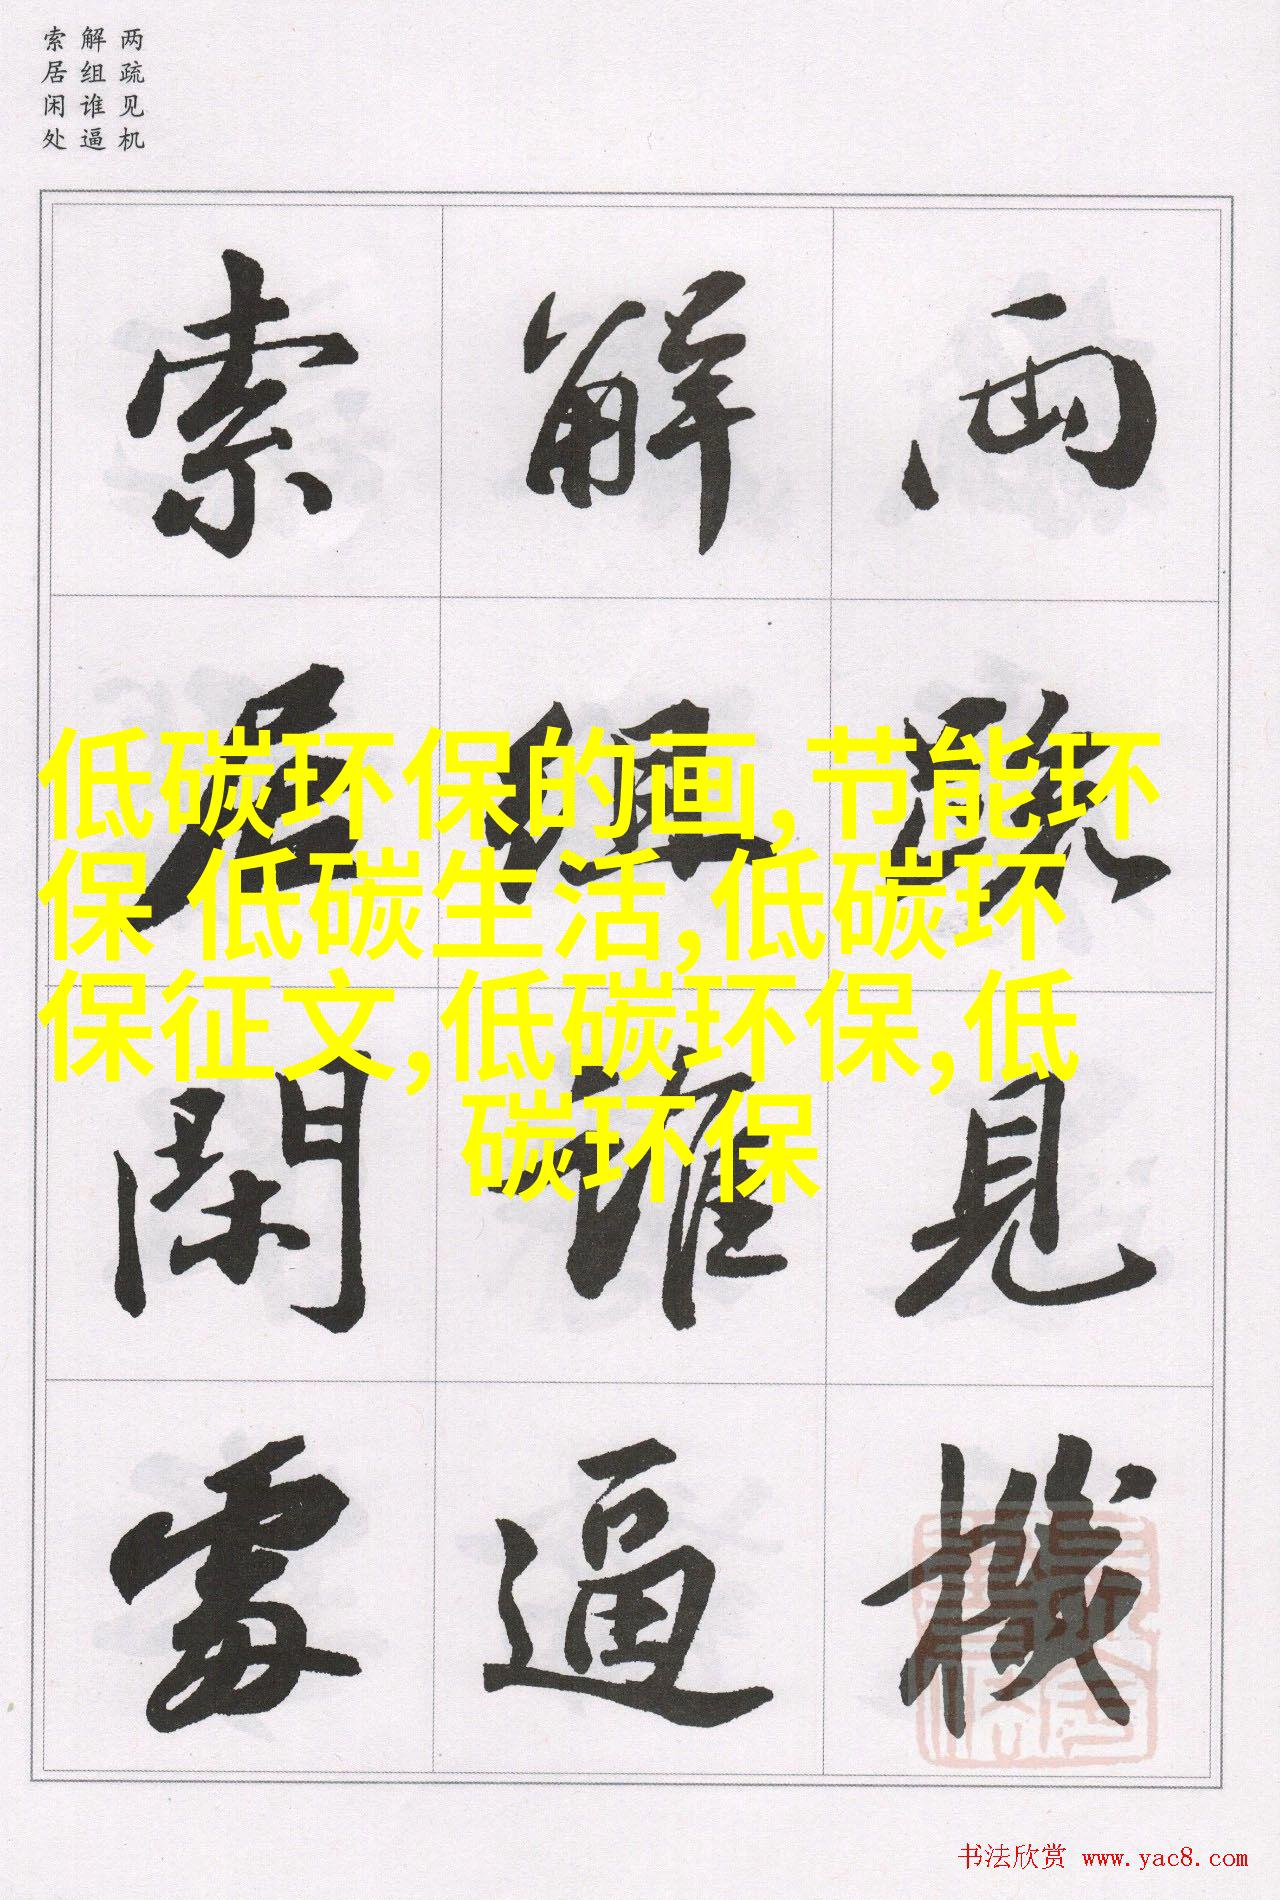 两疏见机
解组谁逼
索居闲处
兩疏見機
解組誰逼
索居閑處
低碳环保的画,节能环
保 低碳生活,低碳环
保征文,低碳环保,低
碳环保
书法欣赏 www.yac8.com